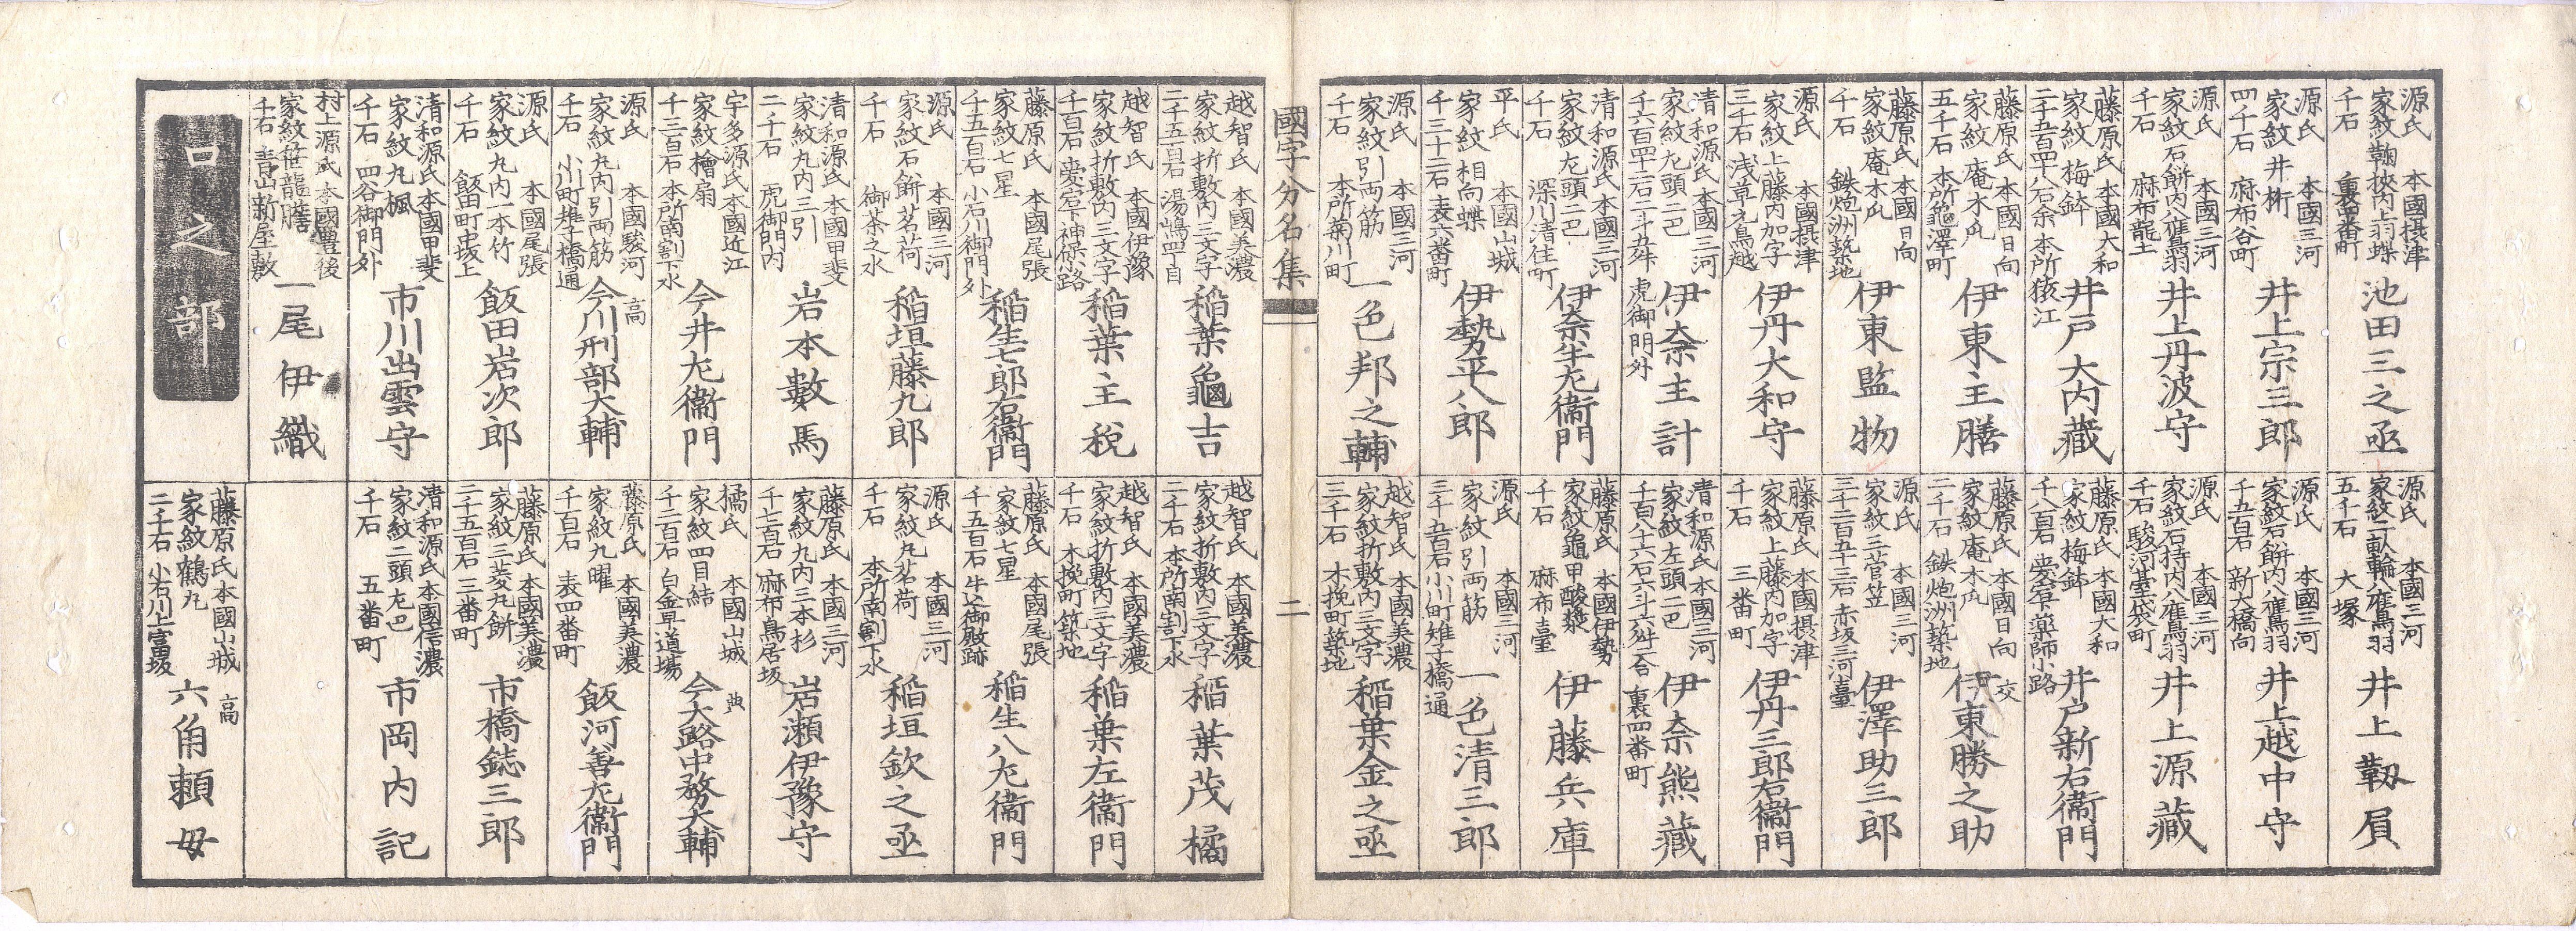 源氏 本國摂津
家紋輪挾内上羽蝶
千石 裏四番町
池田三之丞
源氏 本國三河
家紋井桁
四千石 麻布谷町
井上宗三郎
源氏 本國三河
家紋石餅内八鷹羽
千石 麻布龍土
井上丹波守
藤原氏 本國大和
家紋梅鉢
二千五百四十八石余 本所猿江
井戸大内藏
藤原氏 本國日向
家紋庵木瓜
五千石 本所龜澤町
伊東主膳
藤原氏 本國日向
家紋庵木瓜
千石 鉄炮洲築地
伊東監物
源氏 本國摂津
家紋上藤内加字
三千石 浅草元鳥越
伊丹大和守
清和源氏 本國三河
家紋九頭二巴
千六百四十二石二斗九舛 虎御門外
伊奈主計
清和源氏 本國三河
家紋左頭二巴
千石 深川清住町
伊奈半左衞門
平氏 本國山城
家紋相向蝶
千三十二石 表六番町
伊勢平八郎
源氏 本國三河
家紋引両筋
千石 本所菊川町
一色邦之輔
源氏 本國三河
家紋二重輪八鷹羽
五千石 大塚
井上靱負
源氏 本國三河
家紋石餅内八鷹羽
千五百石 新大橋向
井上越中守
源氏 本國三河
家紋石持内八鷹羽
千石 駿河臺袋町
井上源藏
藤原氏 本國大和
家紋梅鉢
千八百石 愛宕下薬師小路
井戸新右衞門
藤原氏 本國日向
家紋庵木瓜
二千石 鉄炮洲築地
交
伊東勝之助
源氏 本國三河
家紋三菅笠
三千二百五十三石 赤坂三河臺
伊澤助三郎
藤原氏 本國摂津
家紋上藤内加字
千石 三番町
伊丹三郎右衞門
清和源氏 本國三河
家紋左頭二巴
千百八十六石六斗六舛二合 裏四番町
伊奈熊藏
藤原氏 本國伊勢
家紋龜甲酸漿
千石 麻布臺
伊藤兵庫
源氏 本國三河
家紋引両筋
三千五百石 小川町雉子橋通
一色清三郎
越智氏 本國美濃
家紋折敷内三文字
三千石 木挽町築地
稲葉金之丞
國字分名集
二
越智氏 本國美濃
家紋折敷内三文字
二千五百石 湯嶋四丁目
稲葉龜吉
越智氏 本國伊豫
家紋折敷内三文字
千百石 愛宕下神保小路
稲葉主税
藤原氏 本國尾張
家紋七星
千五百石 小石川御門外
稲生七郎右衞門
源氏 本國三河
家紋石餅茗荷
千石 御茶之水
稲垣藤九郎
清和源氏 本國甲斐
家紋丸内三引
二千石 虎御門内
岩本數馬
宇多源氏 本國近江
家紋檜扇
千三百石 本所南割下水
今井左衞門
源氏 本國駿河
家紋丸内引両筋
千石 小川町雉子橋通
高
今川刑部大輔
源氏 本國尾張
家紋丸内一本竹
千石 飯田町中坂上
飯田岩次郎
清和源氏 本國甲斐
家紋丸楓
千石 四谷御門外
市川出雲守
村上源氏 本國豊後
家紋笹龍膽
千石 青山新屋敷
一尾伊織
越智氏 本國美濃
家紋折敷内三文字
二千石 本所南割下水
稲葉茂橘
越智氏 本國美濃
家紋折敷内三文字
千石 木挽町築地
稲葉左衞門
藤原氏 本國尾張
家紋七星
千五百石 牛込御殿跡
稲生八左衞門
源氏 本國三河
家紋丸茗荷
千石 本所南割下水
稲垣欽之丞
藤原氏 本國三河
家紋丸内三本杉
千七百石 麻布鳥居坂
岩瀬伊豫守
橘氏 本國山城
家紋四目結
千二百石 白金早道場
典
今大路中務大輔
藤原氏 本國美濃
家紋九曜
千百石 表四番町
飯河善左衞門
藤原氏 本國美濃
家紋三菱丸餅
二千五百石 三番町
市橋鋕三郎
清和源氏 本國信濃
家紋二頭左巴
千石 五番町
市岡内記
口之部
藤原氏 本國山城
家紋鶴丸
二千石 小石川上富坂
高
六角頼母